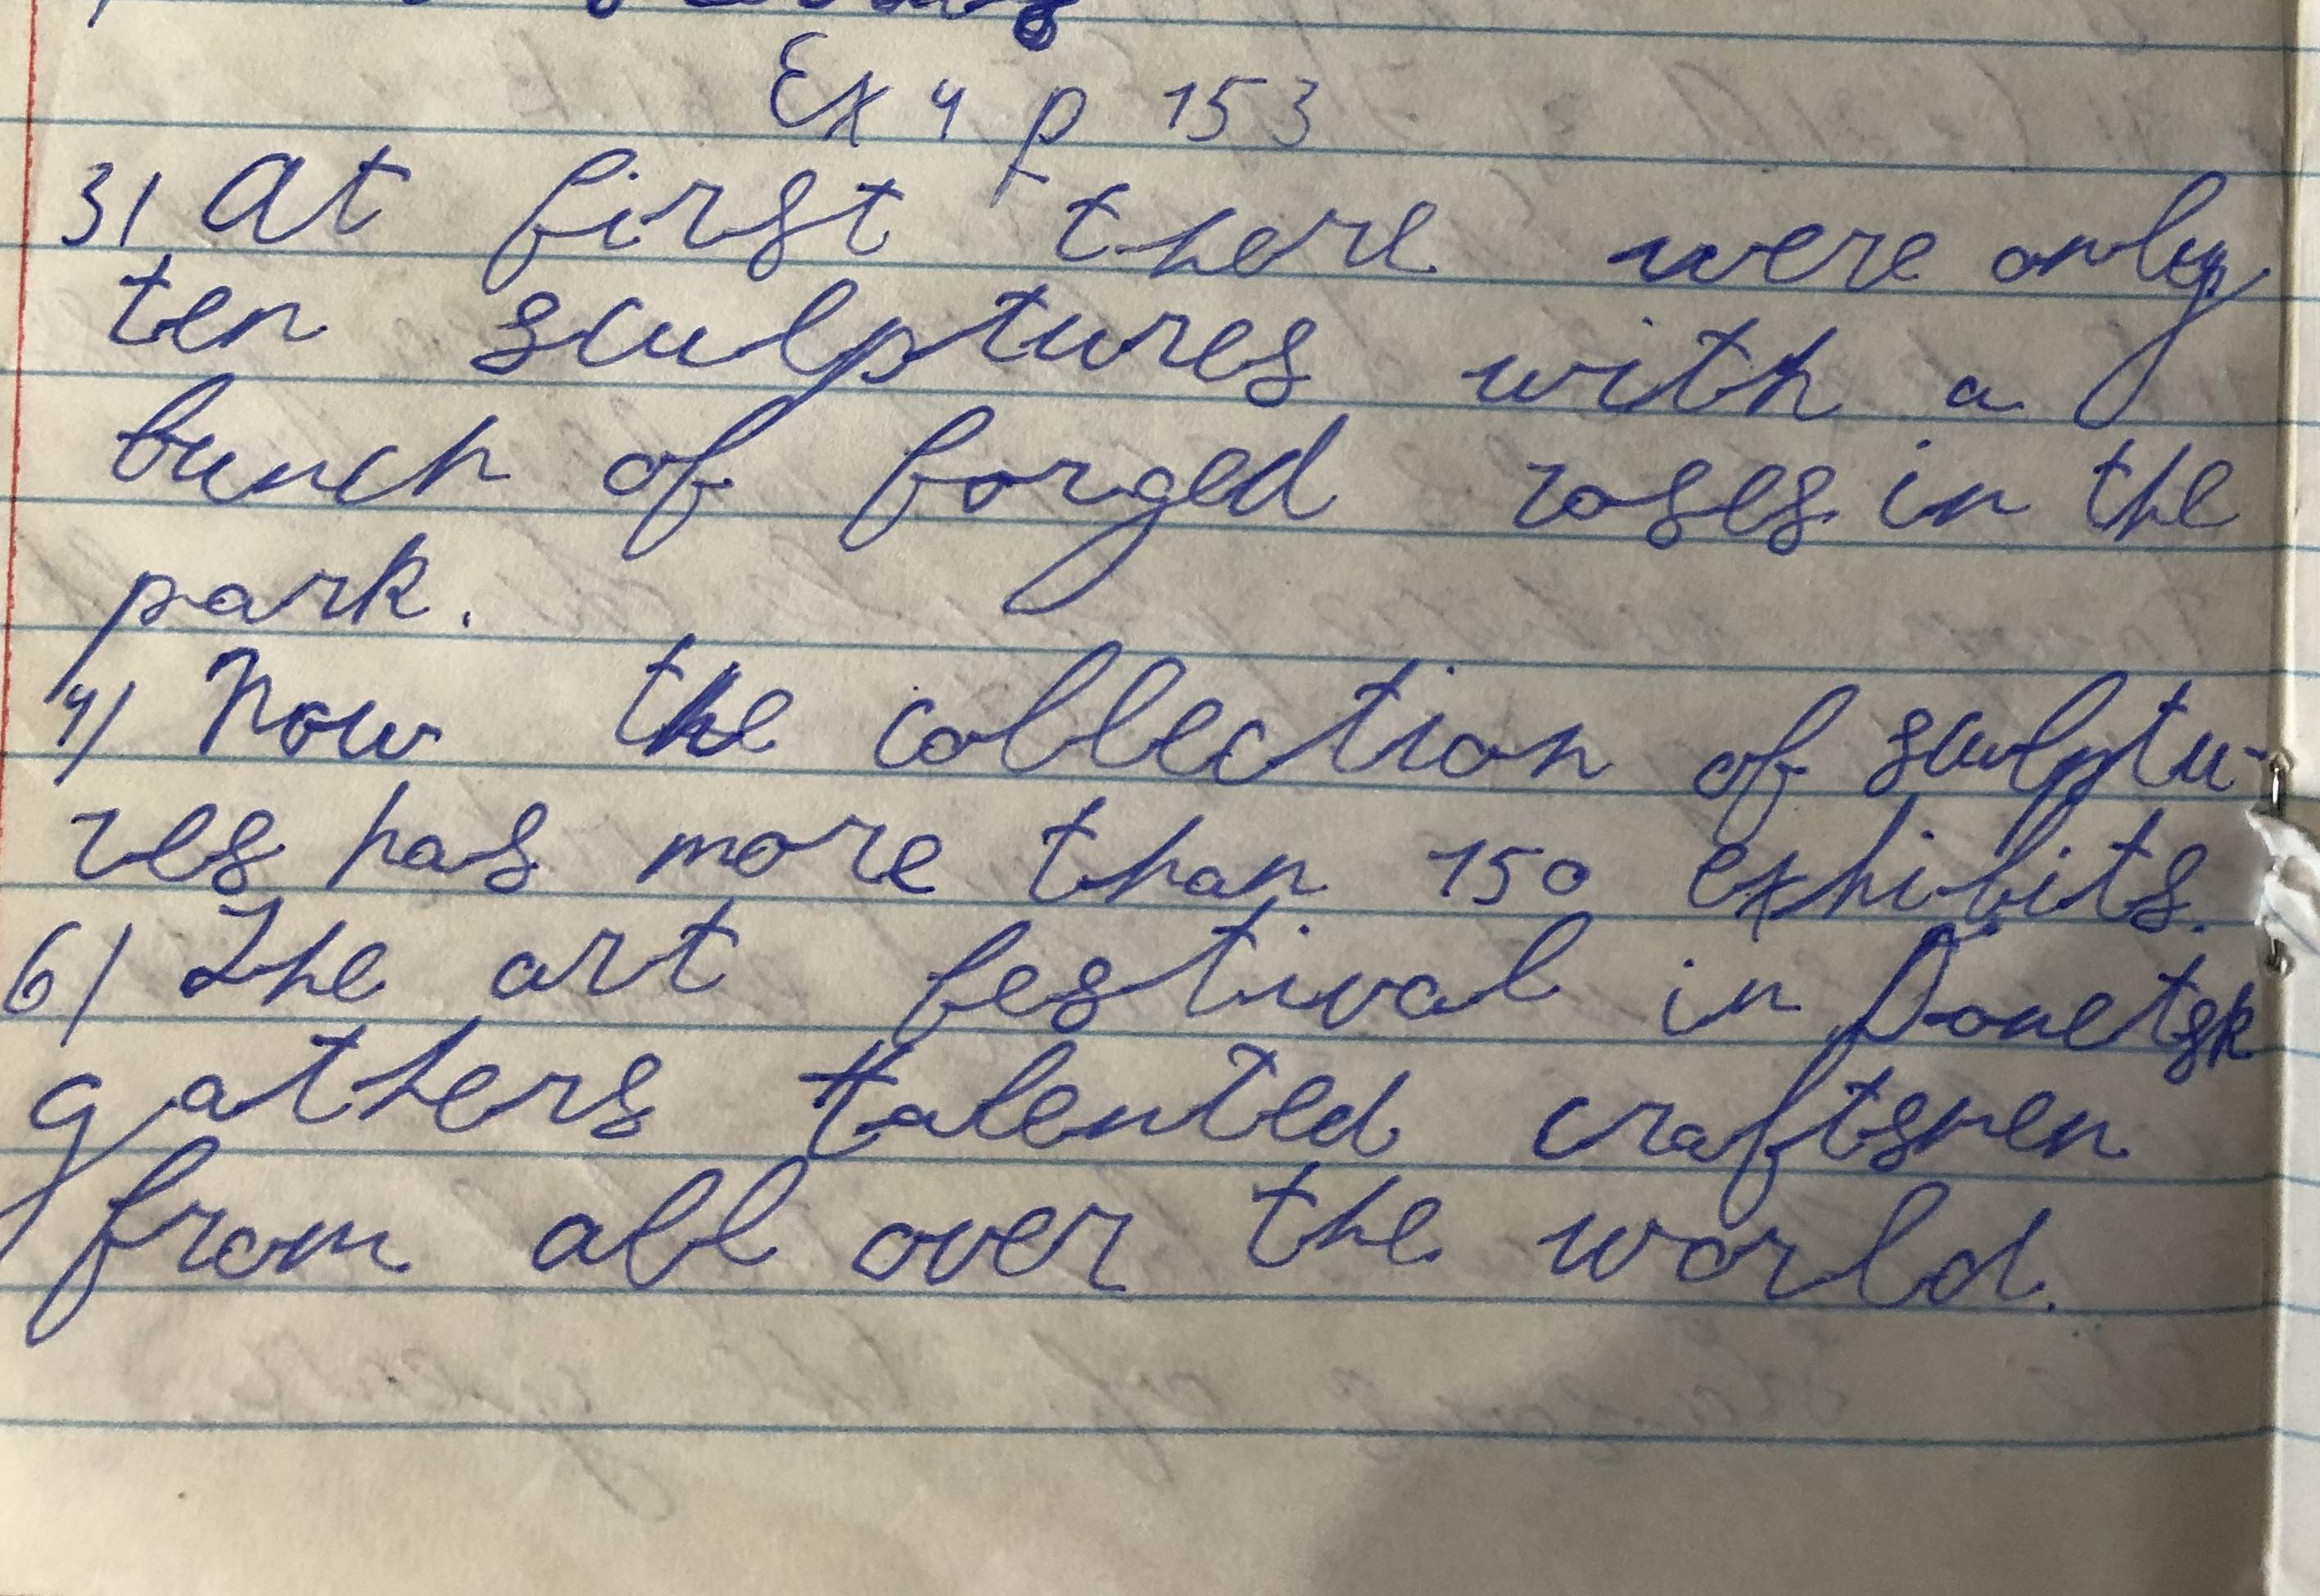 Ex 4 p 153
3) At first there were only
ten sculptures with a
bunch of forged roses in the
park.
4) Now the collection of sculptu-
res has more than 150 exhibits.
6) The art festival in Donetsk
gathers talented craftsmen
from all over the world.